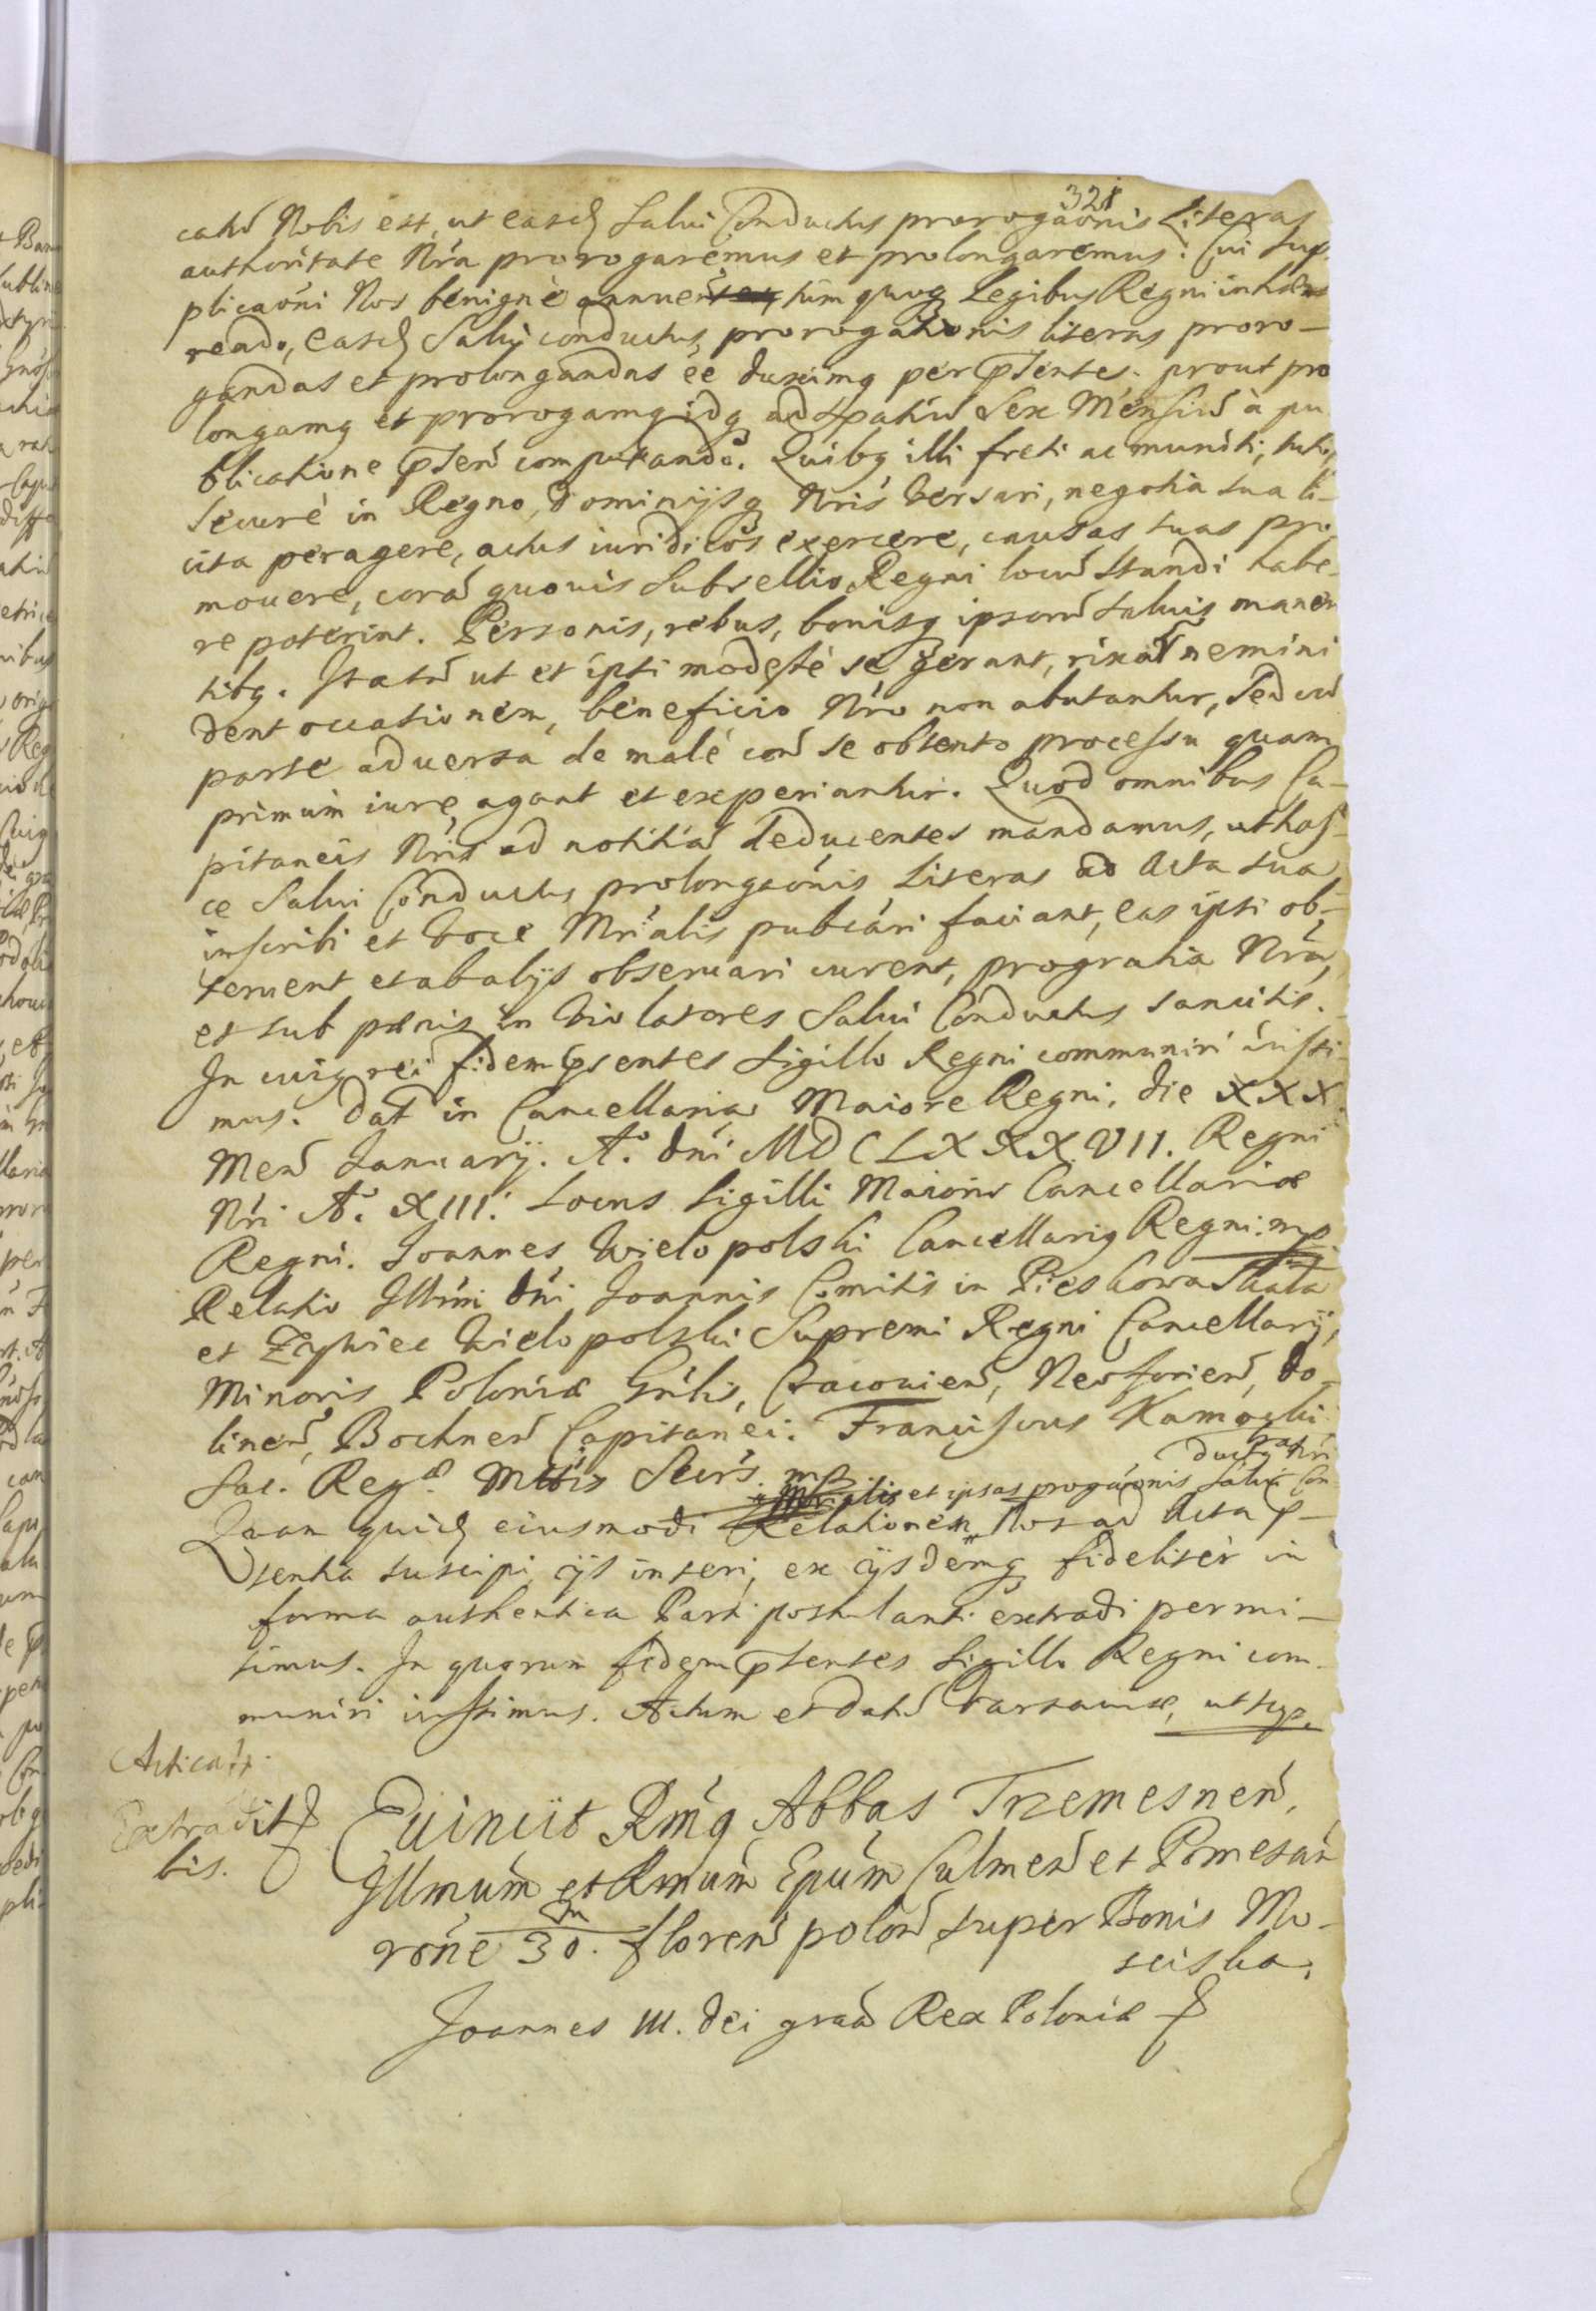 321
catũ Nobis est, ut easđ Salui Conductus prorogaõnis Literas
authoritate Nrã prorogaremus et prolongaremus. Cui sup-
plicaõni Nos benignè annuen̄tes, tùm quoq Legibus Regni inhæ-
rendo, easđ Salui conductus prorogationis literas proro-
gandas et prolongandas ee̅ duximq per pn̄tentes. prout pro
longamq et prorogamq idq ad spatiũ Sex Mensiũ à pu
blicatione pn̄ten̄ computandõ. Quibq illi freti ac muniti, tutò,
Securè in Regno, Dominijsq Nris̄ versari, negotia sua li-
cita peragere, actus iuridicos exercere, causas suas pro-
mouere, corã quouis Subsellio Regni locũ standi habe-
re poterint. Personis, rebus, bonisq ipsorũ saluis manen
tibq. Itatñ ut et ipsi modestè se gerant, rixarũ nemini
dent occasionem, beneficio Nrõ non abutantur, Sed cũ
parte aduersa de malè con̄ se obtento processu quam
primùm iure agant et experiantur. Quod omnibus Ca-
pitaneis Nris̄ ad notitiã deducentes mandamus, ut has-
ce Salui Conductus prolongaõnis Literas ad Acta sua
inscribi et voce Mriãlis publcãri faciant, eas ipsi ob-
seruent et ab alijs obseruari curent, pro gratia Nrã,
et sub pænis in violatores Salui Conductus sancitis.
In cuiq rei fidem prsentes Sigillo Regni communiri iussi-
mus. Dat̄ in Cancellaria Maiore Regni, die XXX.
Men̄ Januarij. Aº. Dni̅ MDCLXXXVII. Regni
Nri̅ Aº. XIII. Locus Sigilli Maioris Cancellariæ
Regni. Joannes Wielopolski Cancellariq Regni. mp
Relatio Illmi̅ Dni̅ Joannis Comitis in Pieskowa Skała
et Zywiec Wielopolski Supremi Regni Cancellarij,
Minoris Poloniæ Gnl̅is, Cracouien̄, Neoforien̄, Do-
linen̄, Bochnen̄ Capitanei. Franciscus Kamocki
Sac. Regæ. Mttis̄ Secrs̄. mp
Mriãlis et ipsas progaõnis Salui Con
ductq Lrãs
Quam quiđ eiusmodi Relationem Nos ad Acta p-
sentia suscipi, ijs inseri, ex ijsdemq fideliter in
forma authentica Parti postulanti extradi permi-
simus. In quorum fidem pn̄sentes Sigillo Regni com-
muniri iussimus. Actum et datũ Varsauiæ, ut sup.
Acticat̄.
Extradit
bis.
Euincit Rmq̄ Abbas Trzemesnen̄,
Illmum̄ et Rmum̄ Epum̄ Culmen̄ et Pomesan̄
rõne 30. m floren̄ polon̄ super Bonis Mo-
sciska.
Joannes III. Dei graã Rex Poloniæ